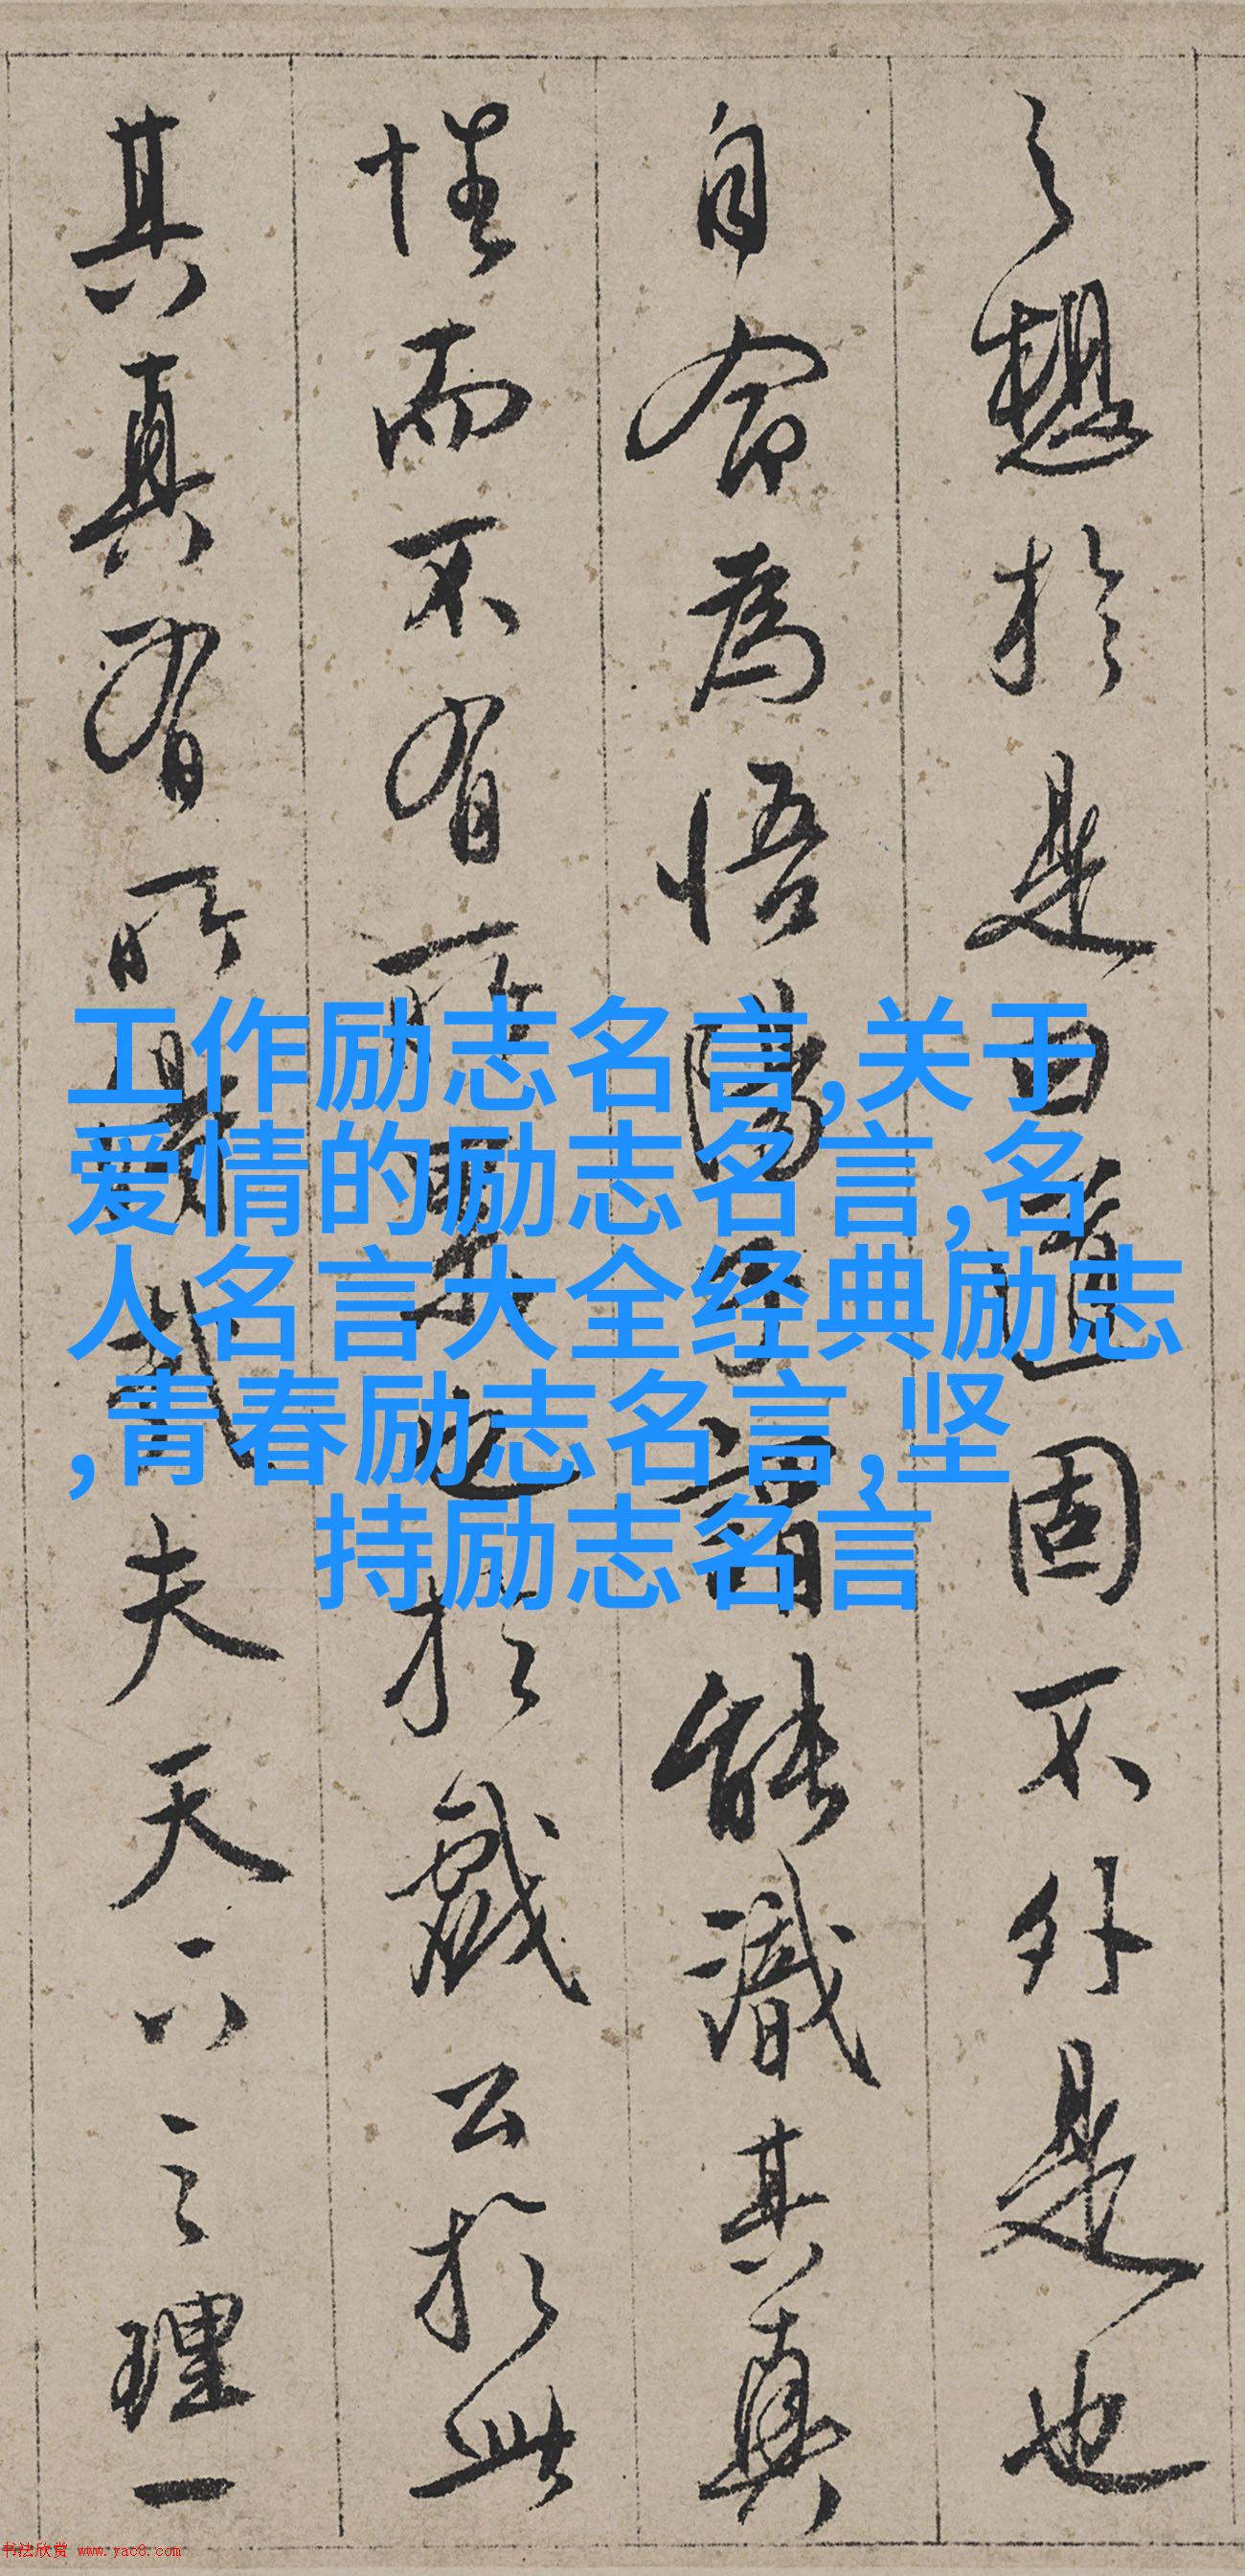 之想於是由道固不外是也
自合为悟阳子谓能识其真
性而不有所也於戏公於此
其真有所夫天下之理一
工作励志名言,关于
爱情的励志名言,名
人名言大全经典励志
,青春励志名言,坚
持励志名言
书法欣赏 www.yac8.com